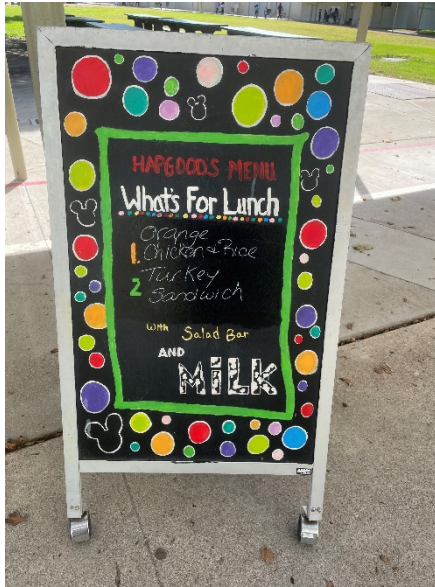 HAPGOOD'S MENU
What's For Lunch
Orange
1. Chicken & Rice
Turkey
2 Sandwich
with Salad Bar
AND
MiLK